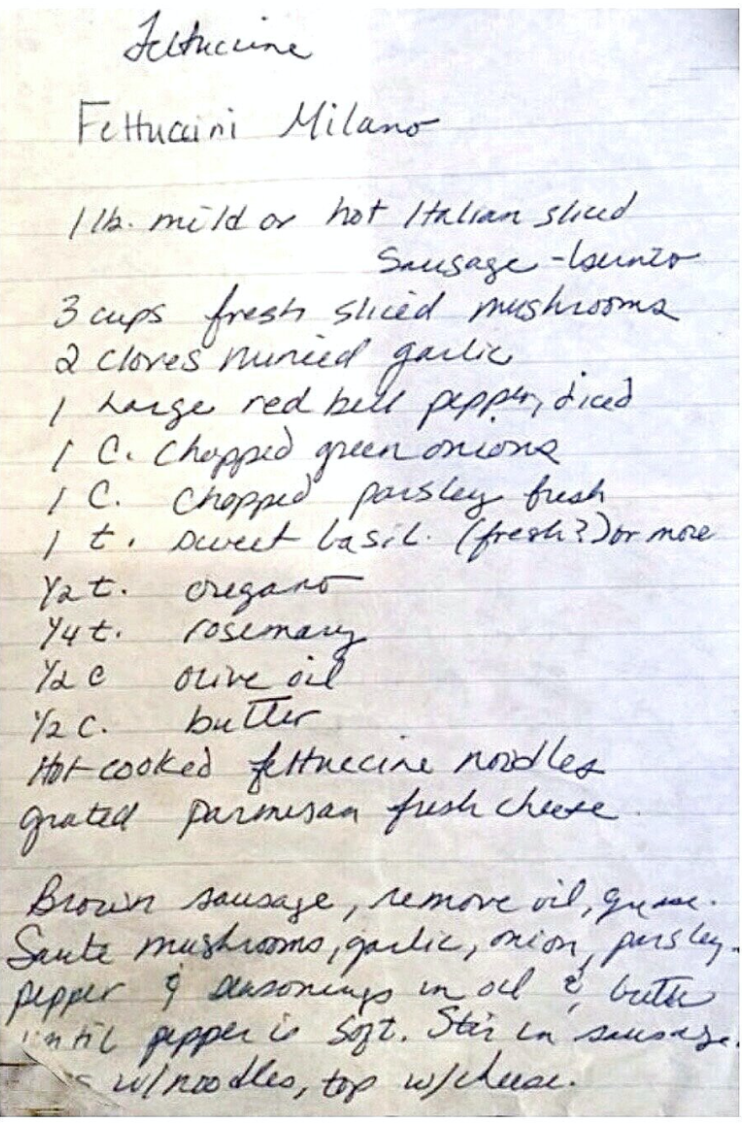 Fettuccine
Fettuccini Milano
1 lb. mild or hot Italian sliced
Sausage -
3 cups fresh sliced mushrooms
2 cloves minced garlic
1 Large red bell pepper, diced
1 C. Chopped green onions
1 C. Chopped parsley fresh
1 t. sweet basil. (fresh?) or more
1/2 t. oregano
1/4 t. rosemary
1/2 c olive oil
1/2 c. butter
Hot cooked fettuccine noodles
grated parmesan fresh cheese.
Brown sausage, remove oil, grease.
Saute mushrooms, garlic, onion, parsley.
pepper & seasonings in oil & butter
until pepper is soft. Stir in sausage.
w/noodles, top w/cheese.